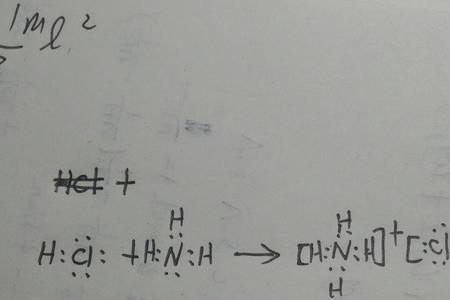 1ml²
HCl +
H
H:Cl: +H:N:H → [H:N:H]⁺ [:Cl
H